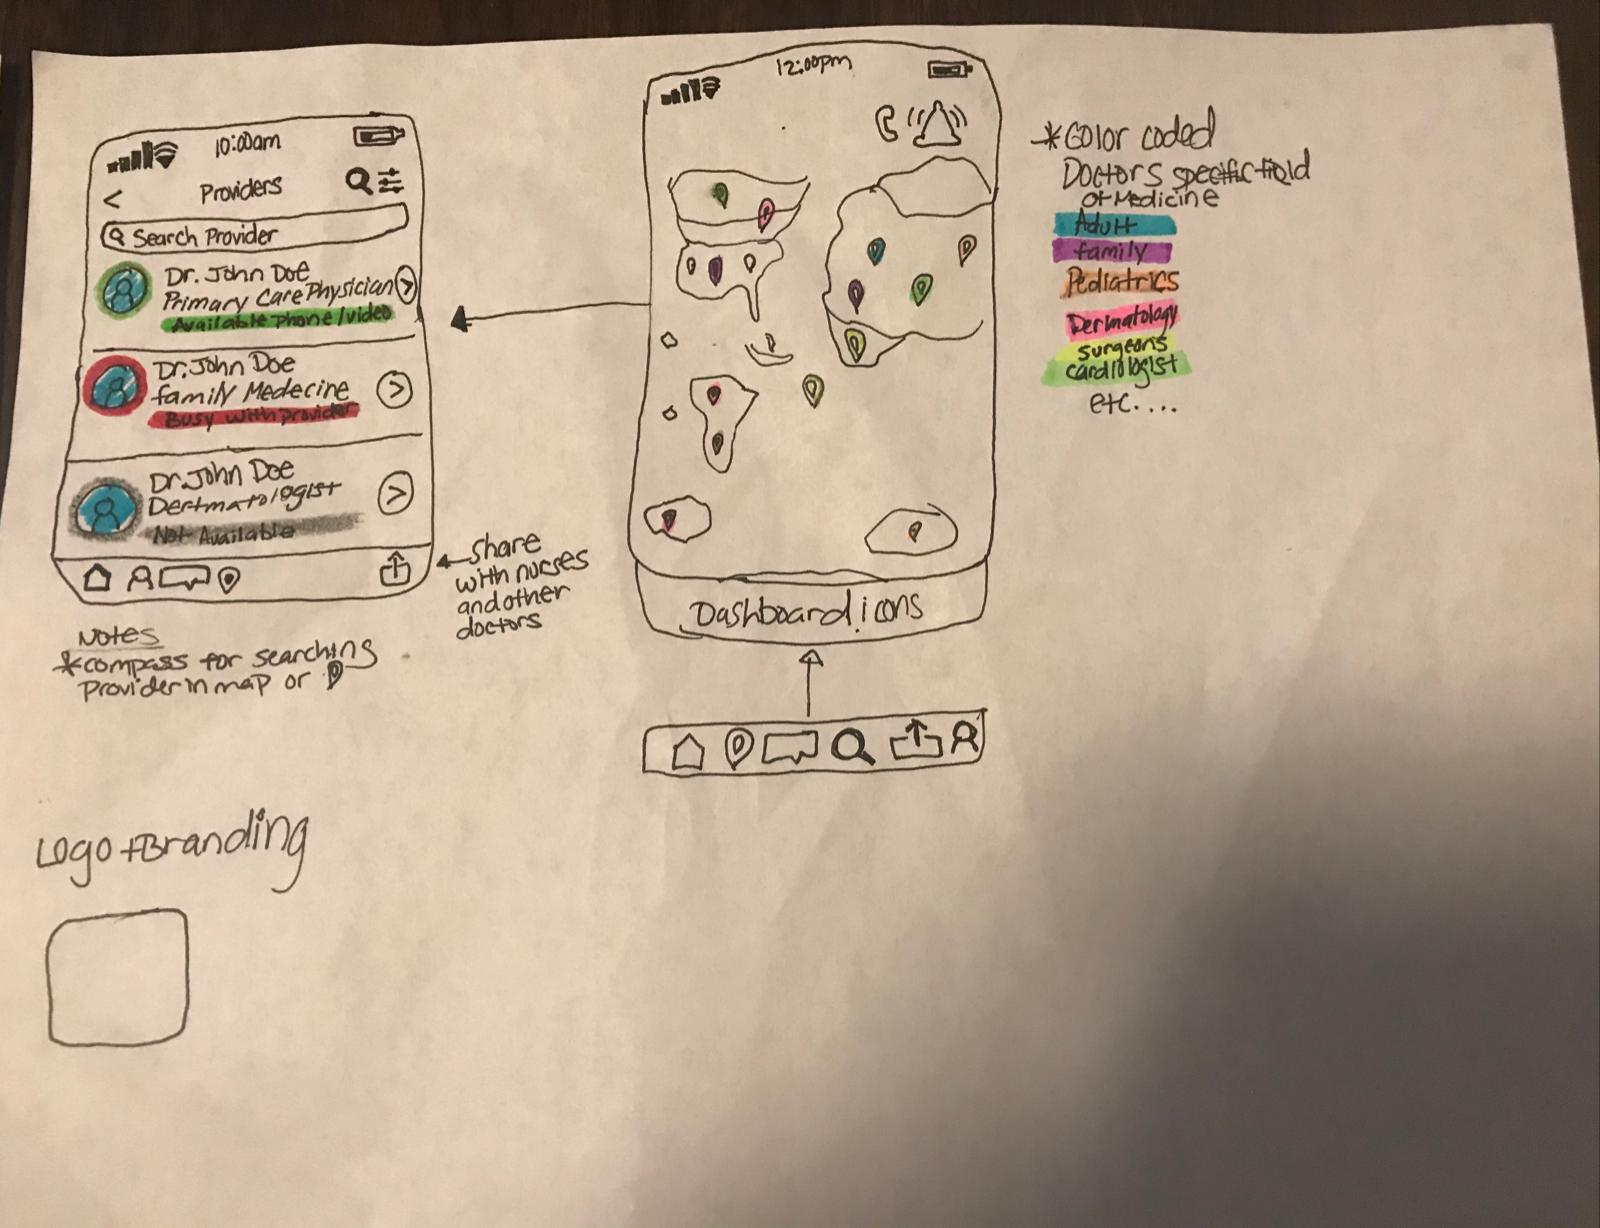 10:00am
Providers
Search Provider
Dr. John Doe
Primary Care Physician
Available phone/video
Dr. John Doe
family Medecine
Busy with provider
Dr. John Doe
Dertmatologist
Not Available
share
with nurses
and other
doctors
Notes
*compass for searching
Provider in map or
12:00pm
Dashboard icons
*Color coded
Doctors specific field
of Medicine
Adult
family
Pediatrics
Dermatology
surgeons
cardiologist
etc....
Logo + Branding